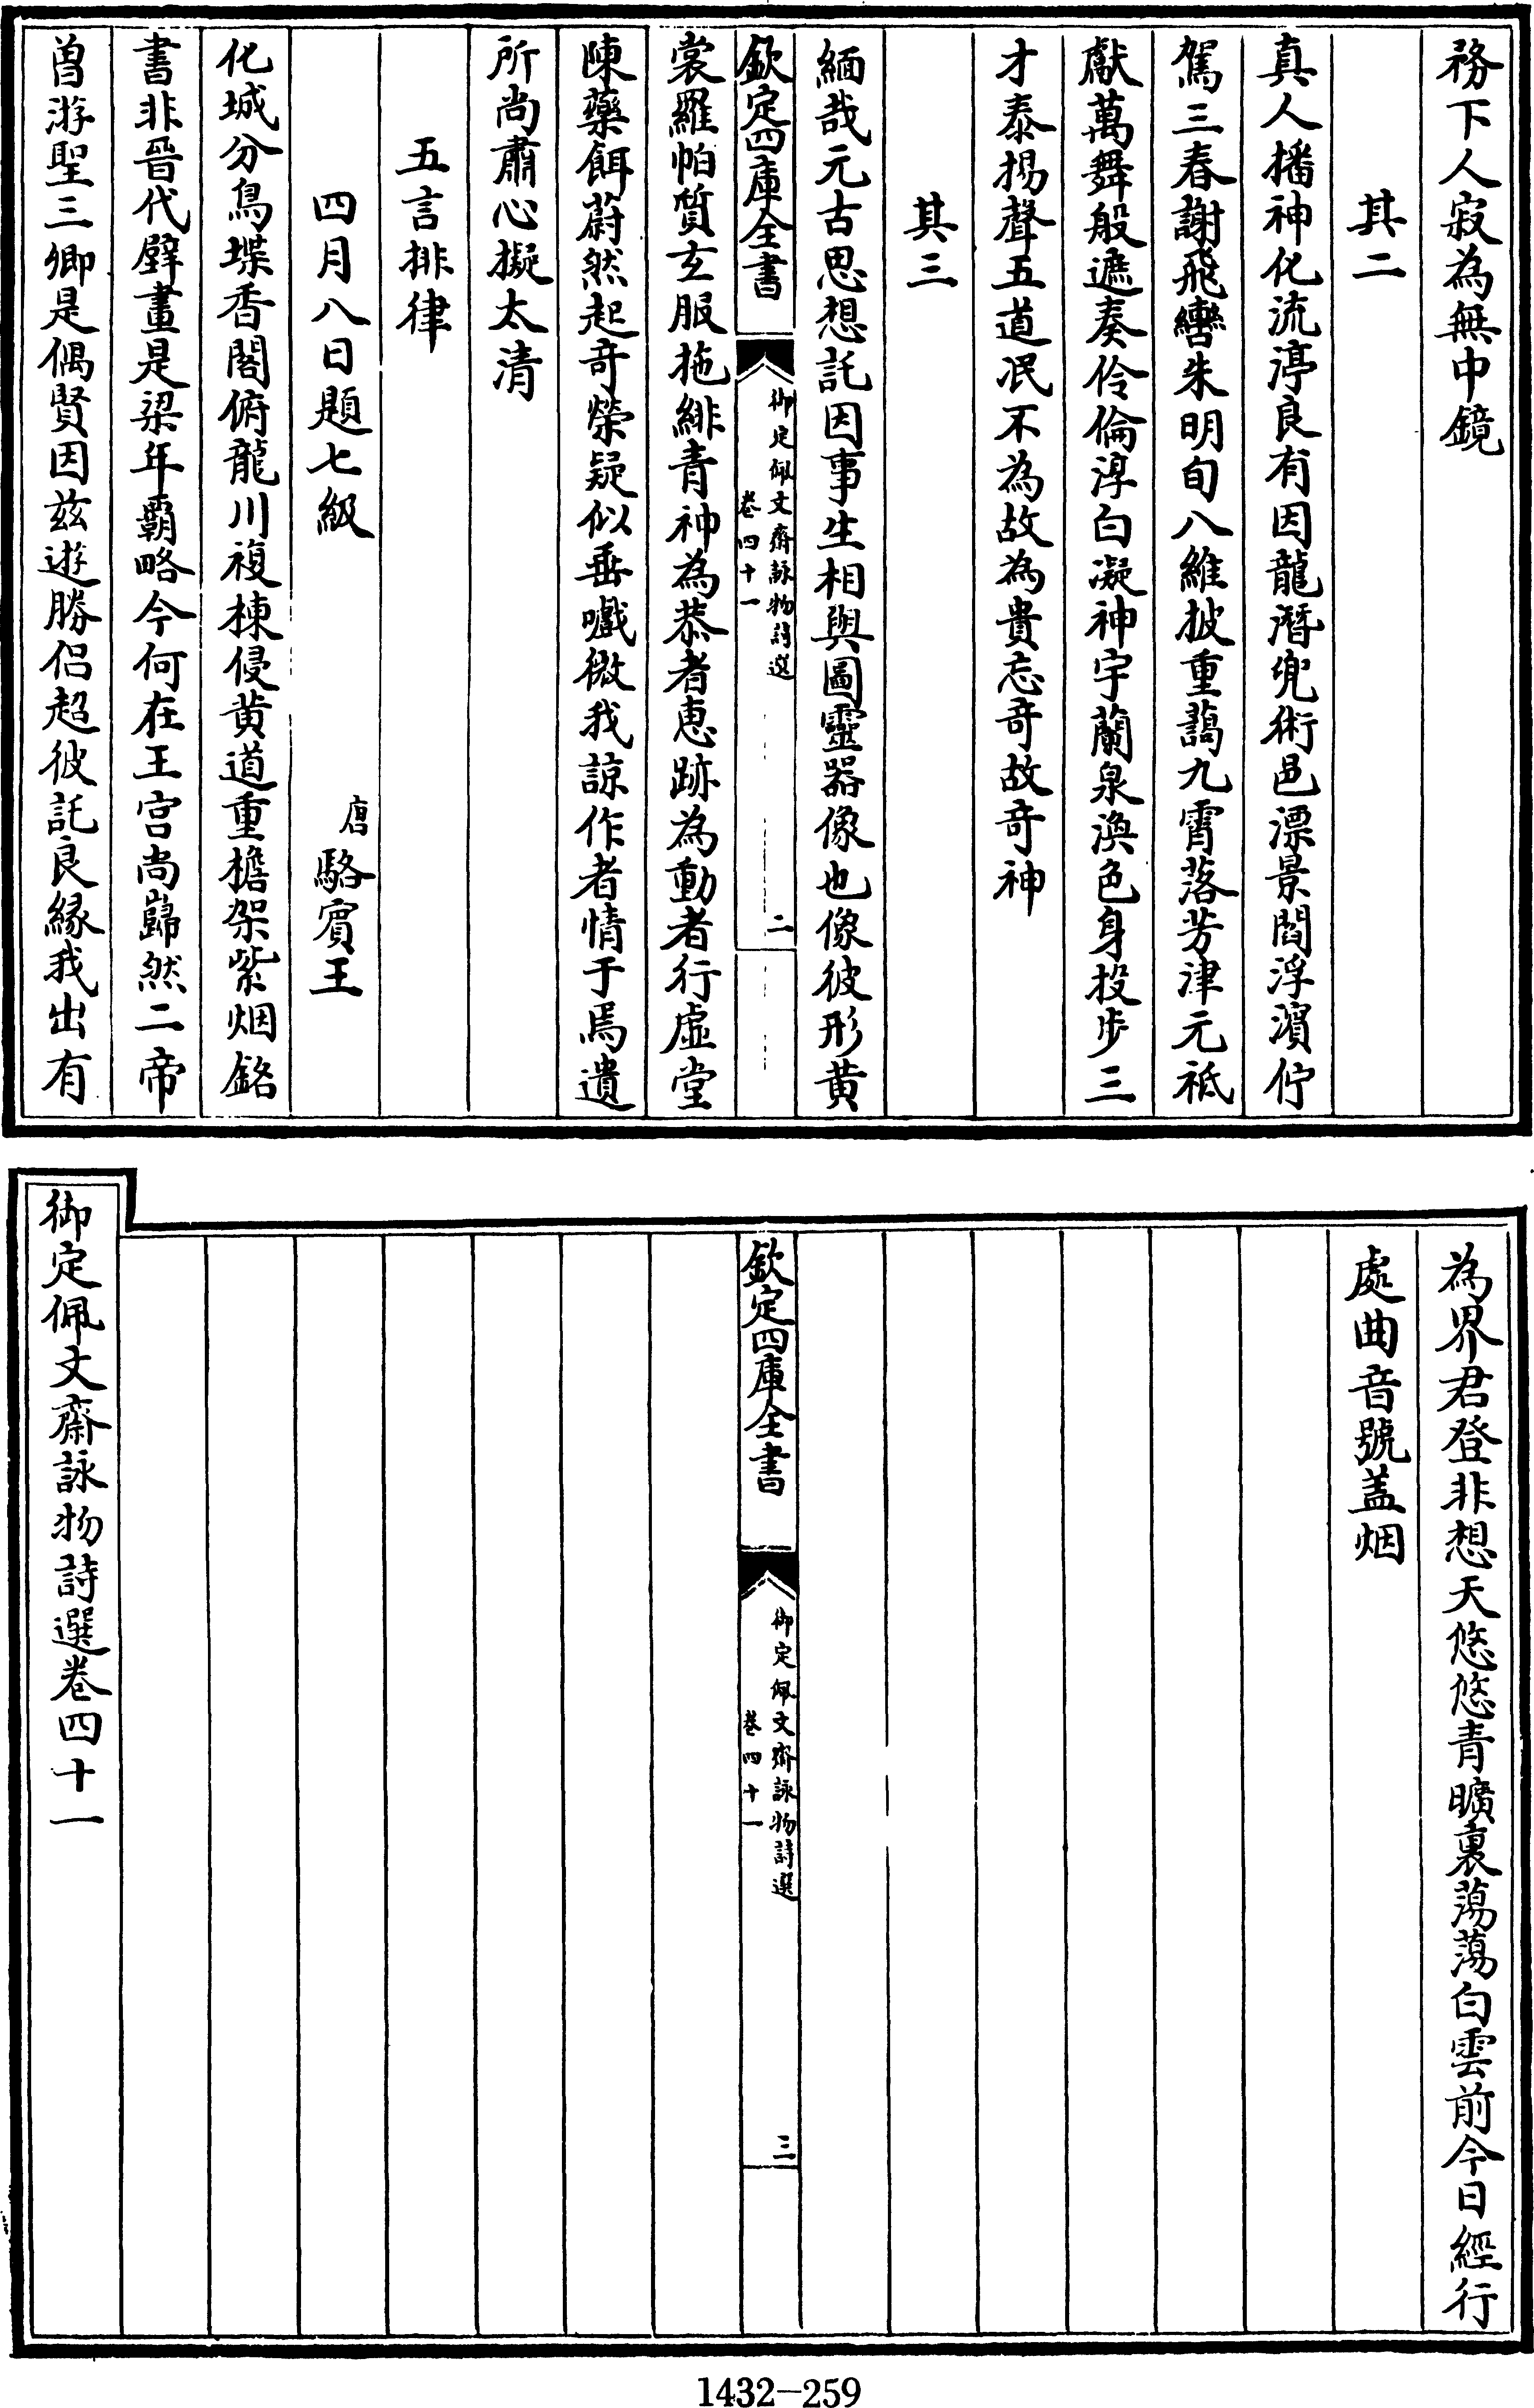 務下人寂為無中鏡
其二
真人播神化流渟良有因龍潛兜術邑漂景閻浮濱佇
駕三春謝飛轡朱明旬八維披重藹九霄落芳津元祗
獻萬舞般遮奏伶倫淳白凝神宇蘭泉渙色身投步三
才泰揚聲五道泯不為故為貴忘奇故奇神
其三
緬哉元古思想託因事生相與圖靈器像也像彼形黃
欽定四庫全書
御定佩文齋詠物詩選
卷四十一
二
裳羅帕質玄服拖緋青神為恭者惠跡為動者行虛堂
陳藥餌蔚然起奇榮疑似垂嚱微我諒作者情于焉遺
所尚肅心擬太清
五言排律
四月八日題七級
唐駱賓王
化城分鳥堞香閣俯龍川複棟侵黃道重檐架紫烟銘
書非晉代壁畫是梁年霸略今何在王宮尚巋然二帝
曾游聖三卿是偶賢因兹遊勝侣超彼託良緣我出有
為界君登非想天悠悠青曠裏蕩蕩白雲前今日經行
處曲音號盖烟
欽定四庫全書
御定佩文齋詠物詩選
卷四十一
三
御定佩文齋詠物詩選卷四十一
1432—259